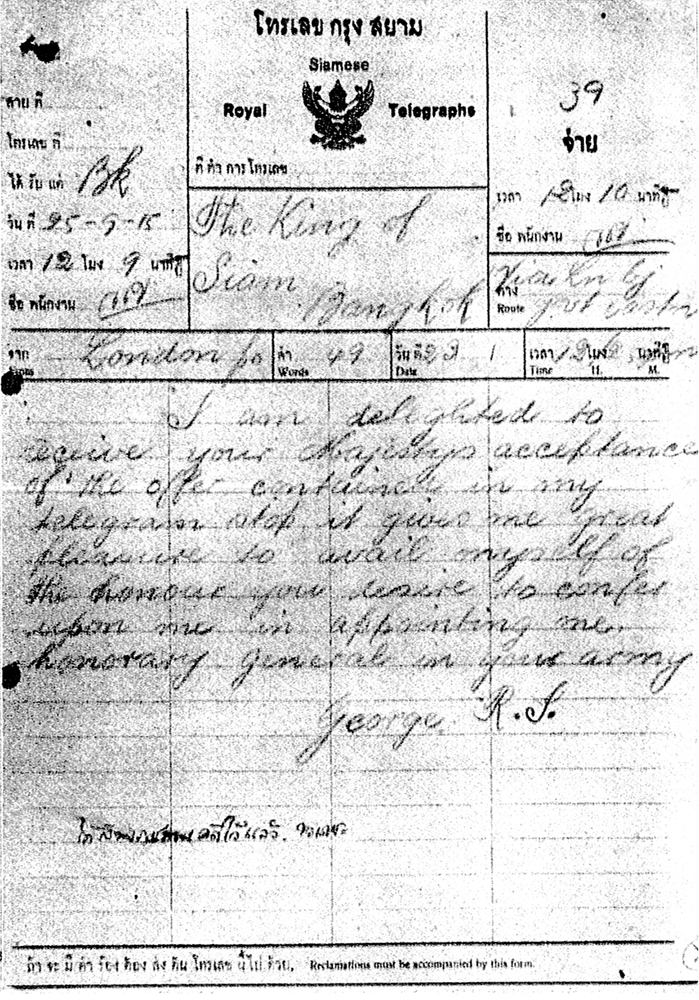 โทรเลข กรุง สยาม
Siamese
Royal Telegraphs
สาย ที่
โทรเลข ที่
ได้ รับ แต่ Bk
วัน ที่ 25-9-15
เวลา 12 โมง 9 นาที
ชื่อ พนักงาน
ที่ ทำ การ โทรเลข
The King of
Siam
Bangkok
39
จ่าย
เวลา 12 โมง 10 นาที
ชื่อ พนักงาน
ทาง
Route
จาก London
คำ 49
Words
วัน ที่ 23
Date
เวลา 12 โมง นาที
Time H. M.
I am delighted to
receive your Majestys acceptance
of the offer contained in my
telegram stop it gives me great
pleasure to avail myself of
the honour you desire to confer
upon me in appointing me
honorary general in your army
George R. I.
ถ้า จะ มี คำ ร้อง ต้อง ส่ง ต้น โทรเลข นี้ ไป ด้วย. Reclamations must be accompanied by this form.